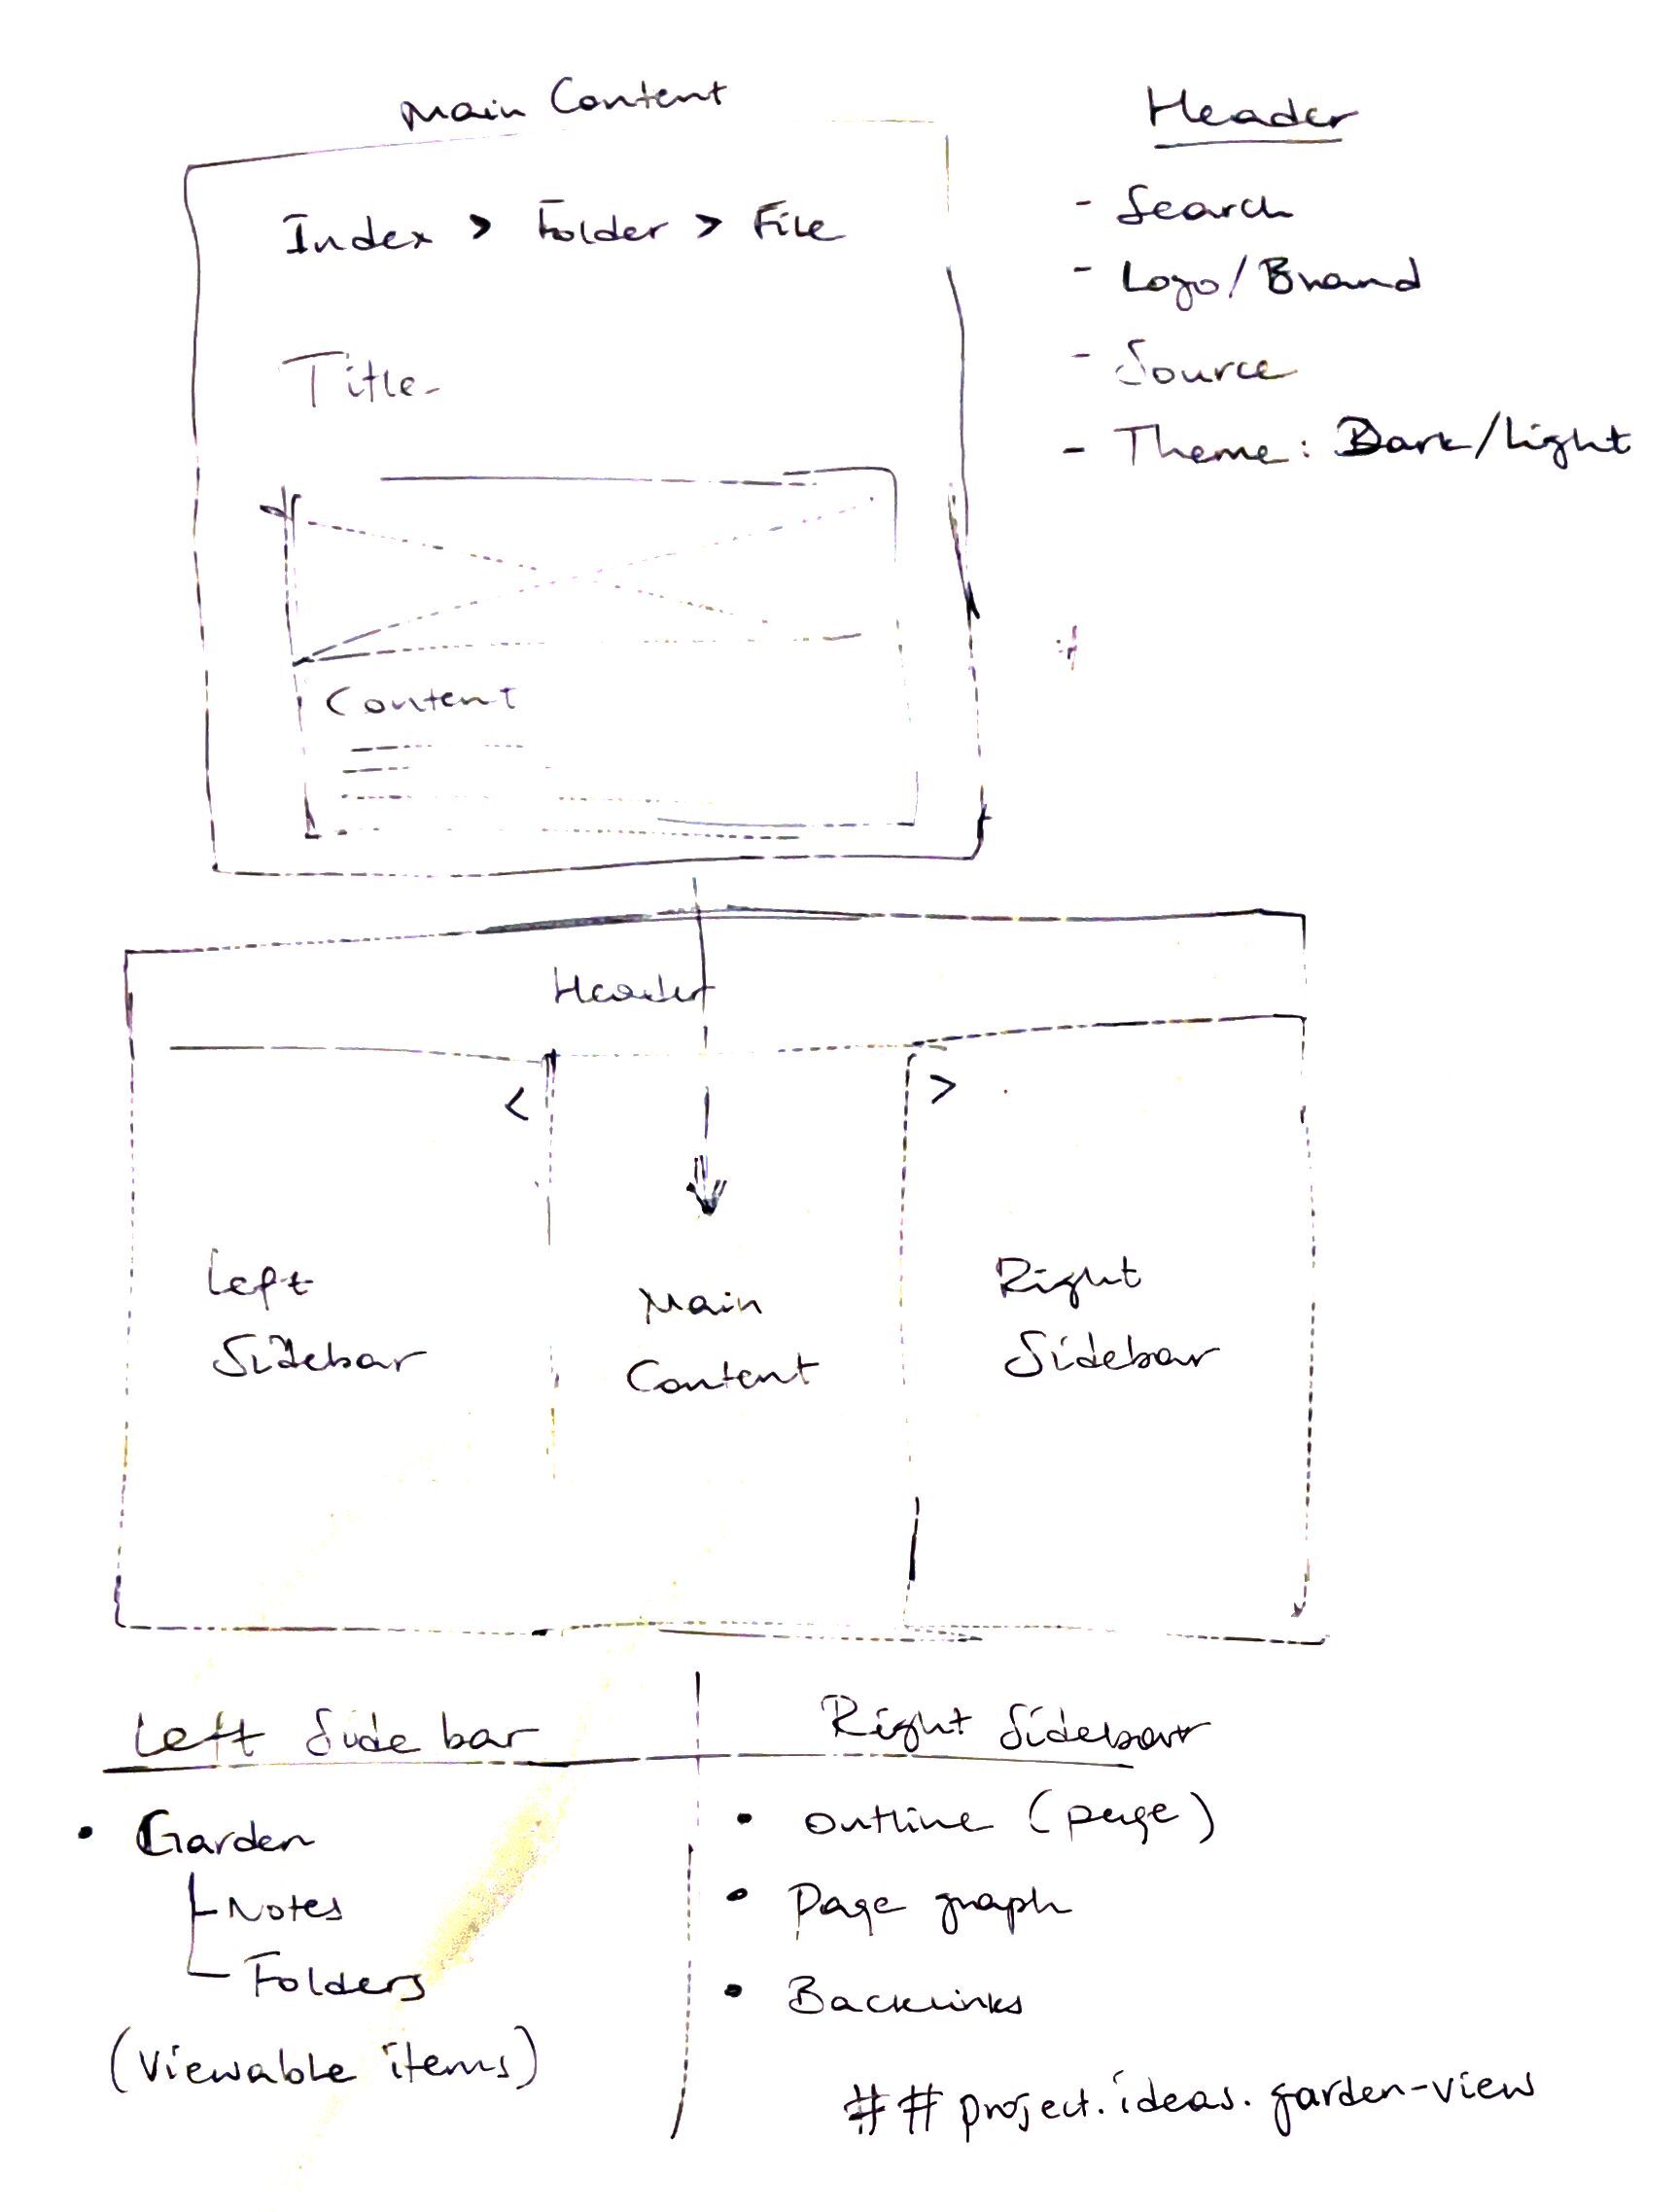 Main Content
Index > Folder > File
Title
Content
Header
- Search
- Logo/Brand
- Source
- Theme: Dark/Light
Header
<
>
Left
Sidebar
Main
Content
Right
Sidebar
Left Sidebar
• Garden
Notes
Folders
(Viewable items)
Right Sidebar
• Outline (page)
• Page graph
• Backlinks
## project.ideas.garden-view